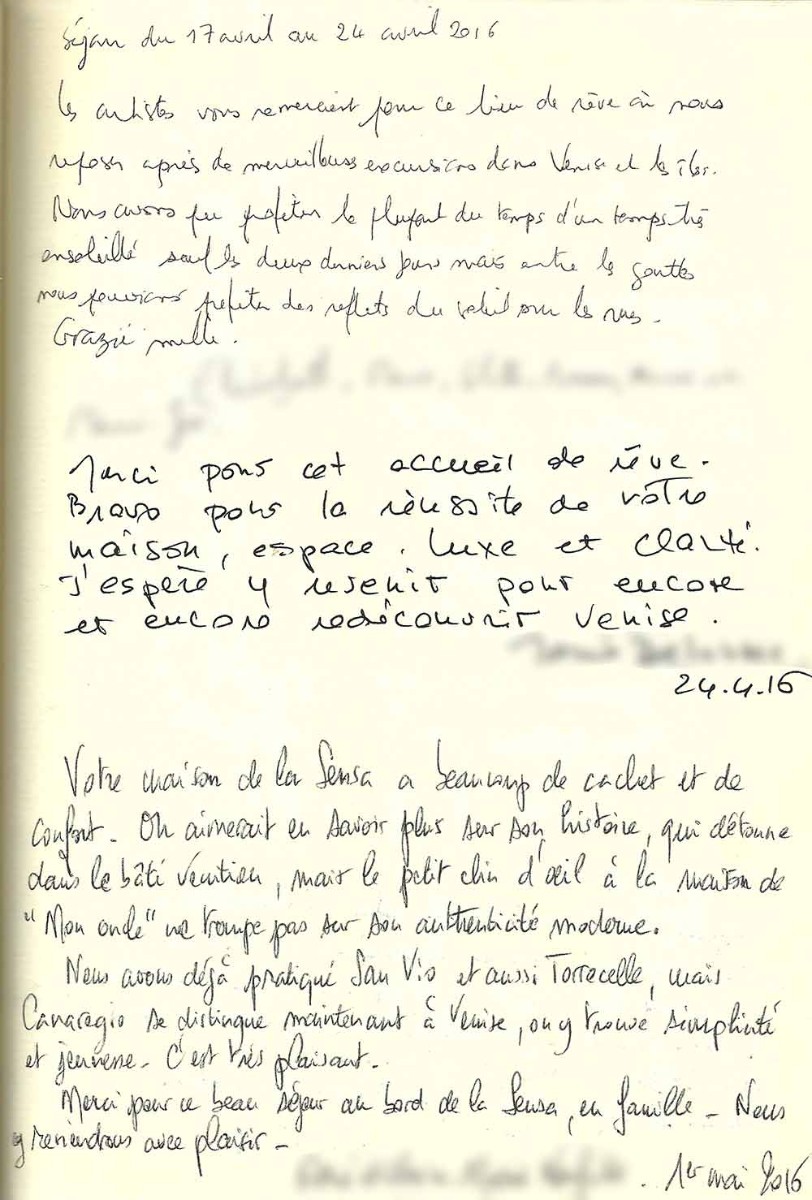 Séjour du 17 avril au 24 avril 2016
Les artistes vous remercient pour ce lieu de rêve où nous
reposer après de merveilleuses excursions dans Venise et les îles.
Nous avons pu profiter la plupart du temps d'un temps très
ensoleillé sauf les deux derniers jours mais entre les gouttes
nous pouvions profiter des reflets du soleil sur les rues.
Grazie mille.
Merci pour cet accueil de rêve.
Bravo pour la réussite de votre
maison, espace, luxe et clarté.
J'espère y revenir pour encore
et encore redécouvrir Venise.
24.4.16
Votre maison de la Sensa a beaucoup de cachet et de
confort. On aimerait en savoir plus sur son histoire, qui détonne
dans le bâti vénitien, mais le petit clin d'oeil à la maison de
"Mon oncle" ne trompe pas sur son authenticité moderne.
Nous avons déjà pratiqué San Vio et aussi Torrecelle, mais
Canaregio se distingue maintenant à Venise, on y trouve simplicité
et jeunesse. C'est très plaisant.
Merci pour ce beau séjour au bord de la Sensa, en famille - Nous
y reviendrons avec plaisir -
1er mai 2016